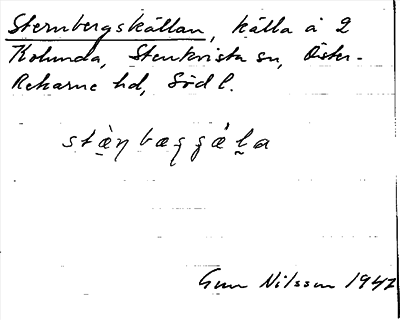 Sternbergskällan, källa å 2
Kolunda, Stenkvista sn, Öster-
Rekarne hd, Södl.
stæ̀ṇbæggæ'ḷa
Gun Nilsson 1947